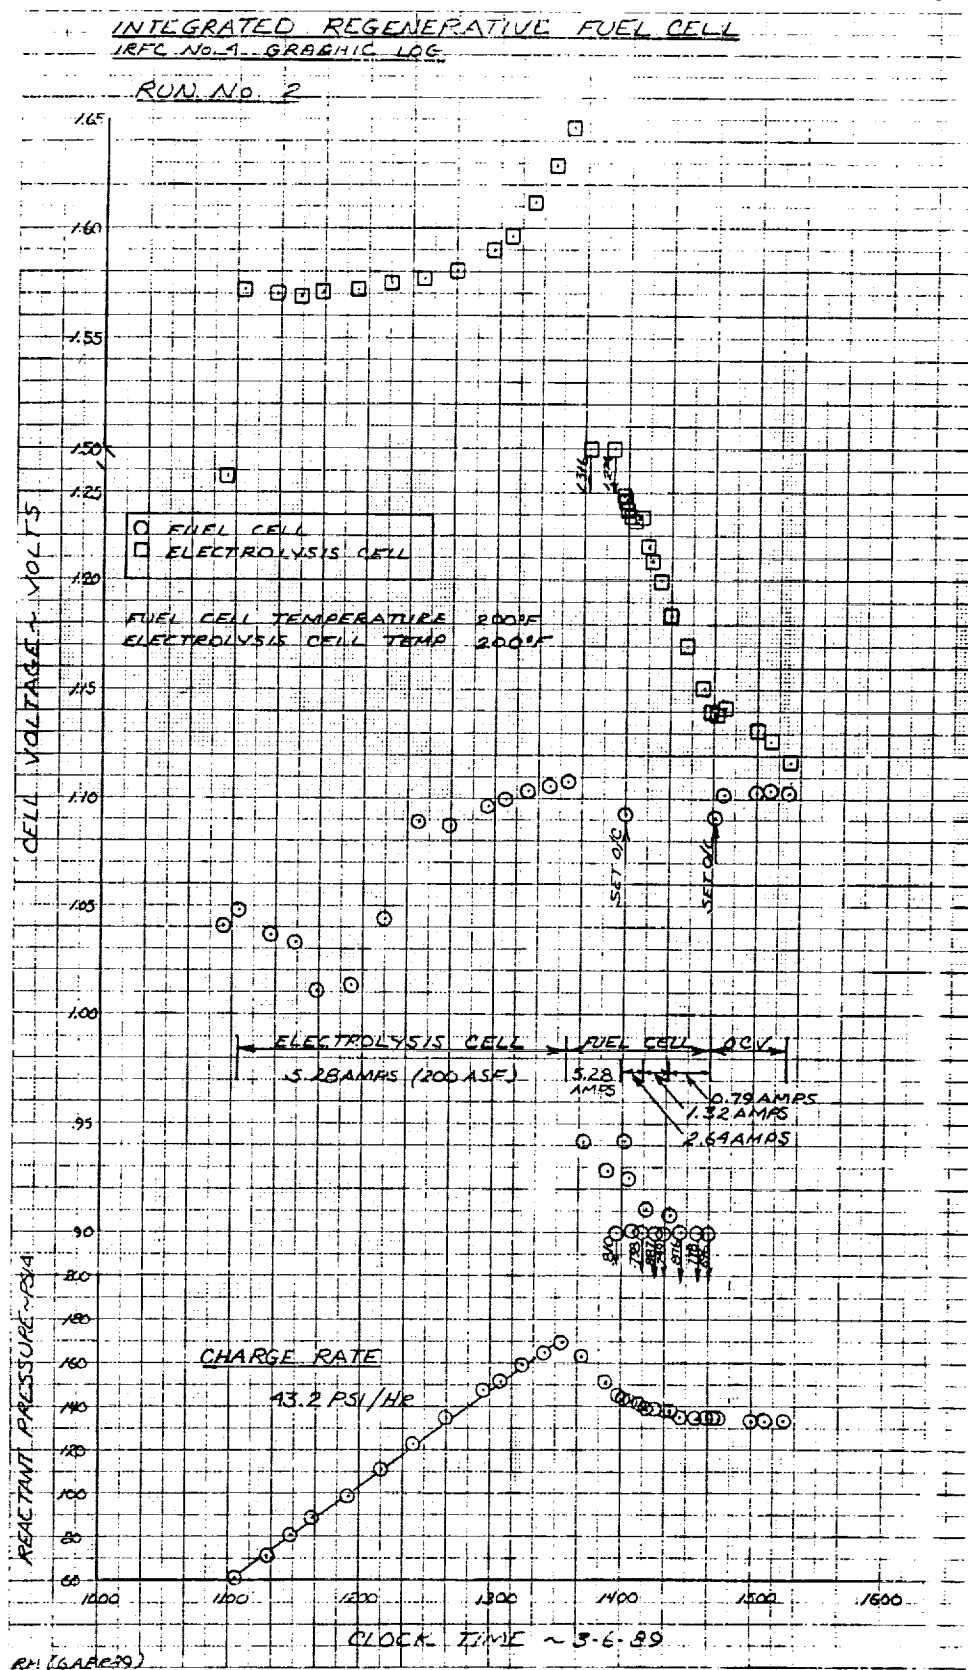 INTEGRATED REGENERATIVE FUEL CELL
IRFC No. 1 GRAPHIC LOG
RUN No. 2
1.65
1.60
1.55
1.50
1.25
1.20
1.15
1.10
1.05
1.00
.95
.90
.80
CELL VOLTAGE ~ VOLTS
FUEL CELL
ELECTROLYSIS CELL
FUEL CELL TEMPERATURE 200°F
ELECTROLYSIS CELL TEMP 200°F
1.316
SET O/C
SET O/C
ELECTROLYSIS CELL
FUEL CELL
O.C.V.
5.28 AMPS (200 ASF)
5.28
AMPS
0.79 AMPS
1.32 AMPS
2.64 AMPS
.810
.738
.876
REACTANT PRESSURE ~ PSIA
180
160
140
120
100
80
60
CHARGE RATE
43.2 PSI/Hr
1000
1100
1200
1300
1400
1500
1600
CLOCK TIME ~ 3-6-89